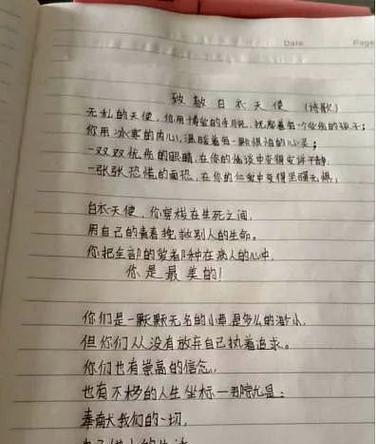 Date
Page
致敬白衣天使 (诗歌)
无私的天使,你用博爱的手腕,抚摩着每一个受伤的孩子;
你用冰寒的内心,温暖着每一颗惧怕的心灵;
一双双忧伤的眼睛,在你的倾谈中变得安详平静,
一张张恐慌的面孔,在你的仁爱中变得坚强无惧,
白衣天使,你穿梭在生死之间,
用自己的青春挽救别人的生命。
你把全部的爱都种在病人的心中,
你是最美的!
你们是一颗颗无名的小草是多么的渺小,
但你们从没有放弃自己执着追求。
你们也有崇高的信念,
也有不移的人生坐标一那就是:
奉献我们的一切,